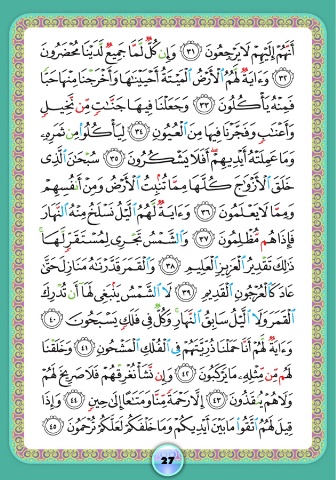 أَنَّهُمْ إِلَيْهِمْ لَا يَرْجِعُونَ ﴿٣١﴾ وَإِن كُلٌّ لَّمَّا جَمِيعٌ لَّدَيْنَا مُحْضَرُونَ
﴿٣٢﴾ وَءَايَةٌ لَّهُمُ ٱلْأَرْضُ ٱلْمَيْتَةُ أَحْيَيْنَـٰهَا وَأَخْرَجْنَا مِنْهَا حَبًّا
فَمِنْهُ يَأْكُلُونَ ﴿٣٣﴾ وَجَعَلْنَا فِيهَا جَنَّـٰتٍ مِّن نَّخِيلٍ
وَأَعْنَـٰبٍ وَفَجَّرْنَا فِيهَا مِنَ ٱلْعُيُونِ ﴿٣٤﴾ لِيَأْكُلُوا۟ مِن ثَمَرِهِۦ
وَمَا عَمِلَتْهُ أَيْدِيهِمْ ۖ أَفَلَا يَشْكُرُونَ ﴿٣٥﴾ سُبْحَـٰنَ ٱلَّذِى
خَلَقَ ٱلْأَزْوَٰجَ كُلَّهَا مِمَّا تُنۢبِتُ ٱلْأَرْضُ وَمِنْ أَنفُسِهِمْ
وَمِمَّا لَا يَعْلَمُونَ ﴿٣٦﴾ وَءَايَةٌ لَّهُمُ ٱلَّيْلُ نَسْلَخُ مِنْهُ ٱلنَّهَارَ
فَإِذَا هُم مُّظْلِمُونَ ﴿٣٧﴾ وَٱلشَّمْسُ تَجْرِى لِمُسْتَقَرٍّ لَّهَا ۚ
ذَٰلِكَ تَقْدِيرُ ٱلْعَزِيزِ ٱلْعَلِيمِ ﴿٣٨﴾ وَٱلْقَمَرَ قَدَّرْنَـٰهُ مَنَازِلَ حَتَّىٰ
عَادَ كَٱلْعُرْجُونِ ٱلْقَدِيمِ ﴿٣٩﴾ لَا ٱلشَّمْسُ يَنۢبَغِى لَهَآ أَن تُدْرِكَ
ٱلْقَمَرَ وَلَا ٱلَّيْلُ سَابِقُ ٱلنَّهَارِ ۚ وَكُلٌّ فِى فَلَكٍ يَسْبَحُونَ ﴿٤٠﴾
وَءَايَةٌ لَّهُمْ أَنَّا حَمَلْنَا ذُرِّيَّتَهُمْ فِى ٱلْفُلْكِ ٱلْمَشْحُونِ ﴿٤١﴾ وَخَلَقْنَا
لَهُم مِّن مِّثْلِهِۦ مَا يَرْكَبُونَ ﴿٤٢﴾ وَإِن نَّشَأْ نُغْرِقْهُمْ فَلَا صَرِيخَ لَهُمْ
وَلَا هُمْ يُنقَذُونَ ﴿٤٣﴾ إِلَّا رَحْمَةً مِّنَّا وَمَتَـٰعًا إِلَىٰ حِينٍ ﴿٤٤﴾ وَإِذَا
قِيلَ لَهُمُ ٱتَّقُوا۟ مَا بَيْنَ أَيْدِيكُمْ وَمَا خَلْفَكُمْ لَعَلَّكُمْ تُرْحَمُونَ ﴿٤٥﴾
27